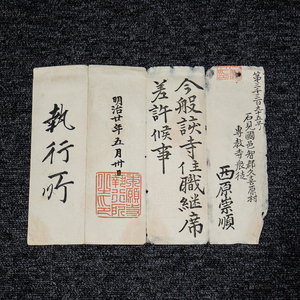 第三千三百九十五号
石見國邑智郡久喜原村
専教寺衆徒
西原崇順
今般該寺住職継席
差許候事
明治廿年五月卅日
執行所